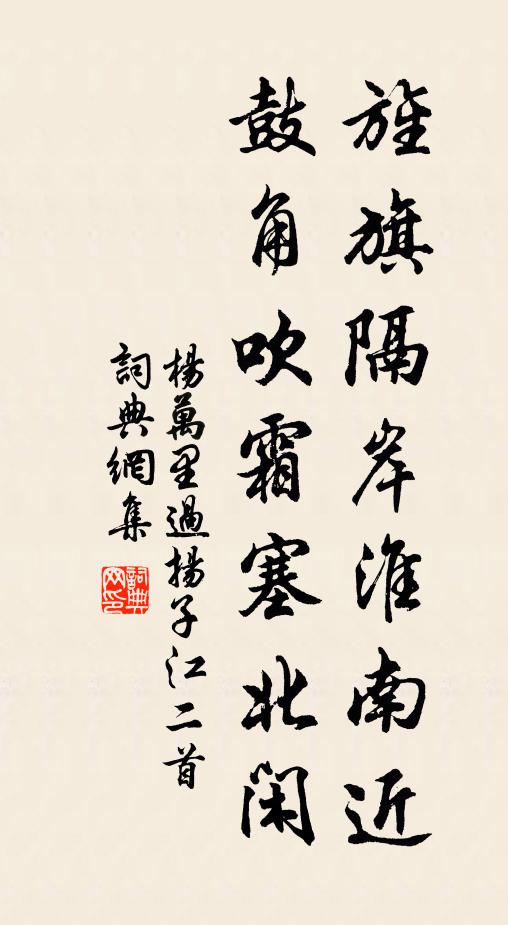 旌旗隔岸淮南近
鼓角吹霜塞北闲
楊萬里過揚子江二首
詞典網集
詞典網印